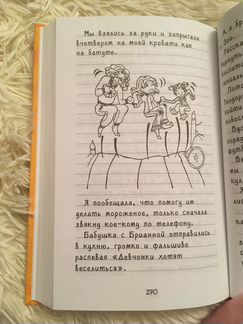 Мы взялись за руки и запрыгали
вчетвером на моей кровати как
на батуте.
Я пообещала, что помогу им
делать мороженое, только сначала
звякну кое-кому по телефону.
Бабушка с Брианной отправились
в кухню, громко и фальшиво
распевая «Девчонки хотят
веселиться».
270